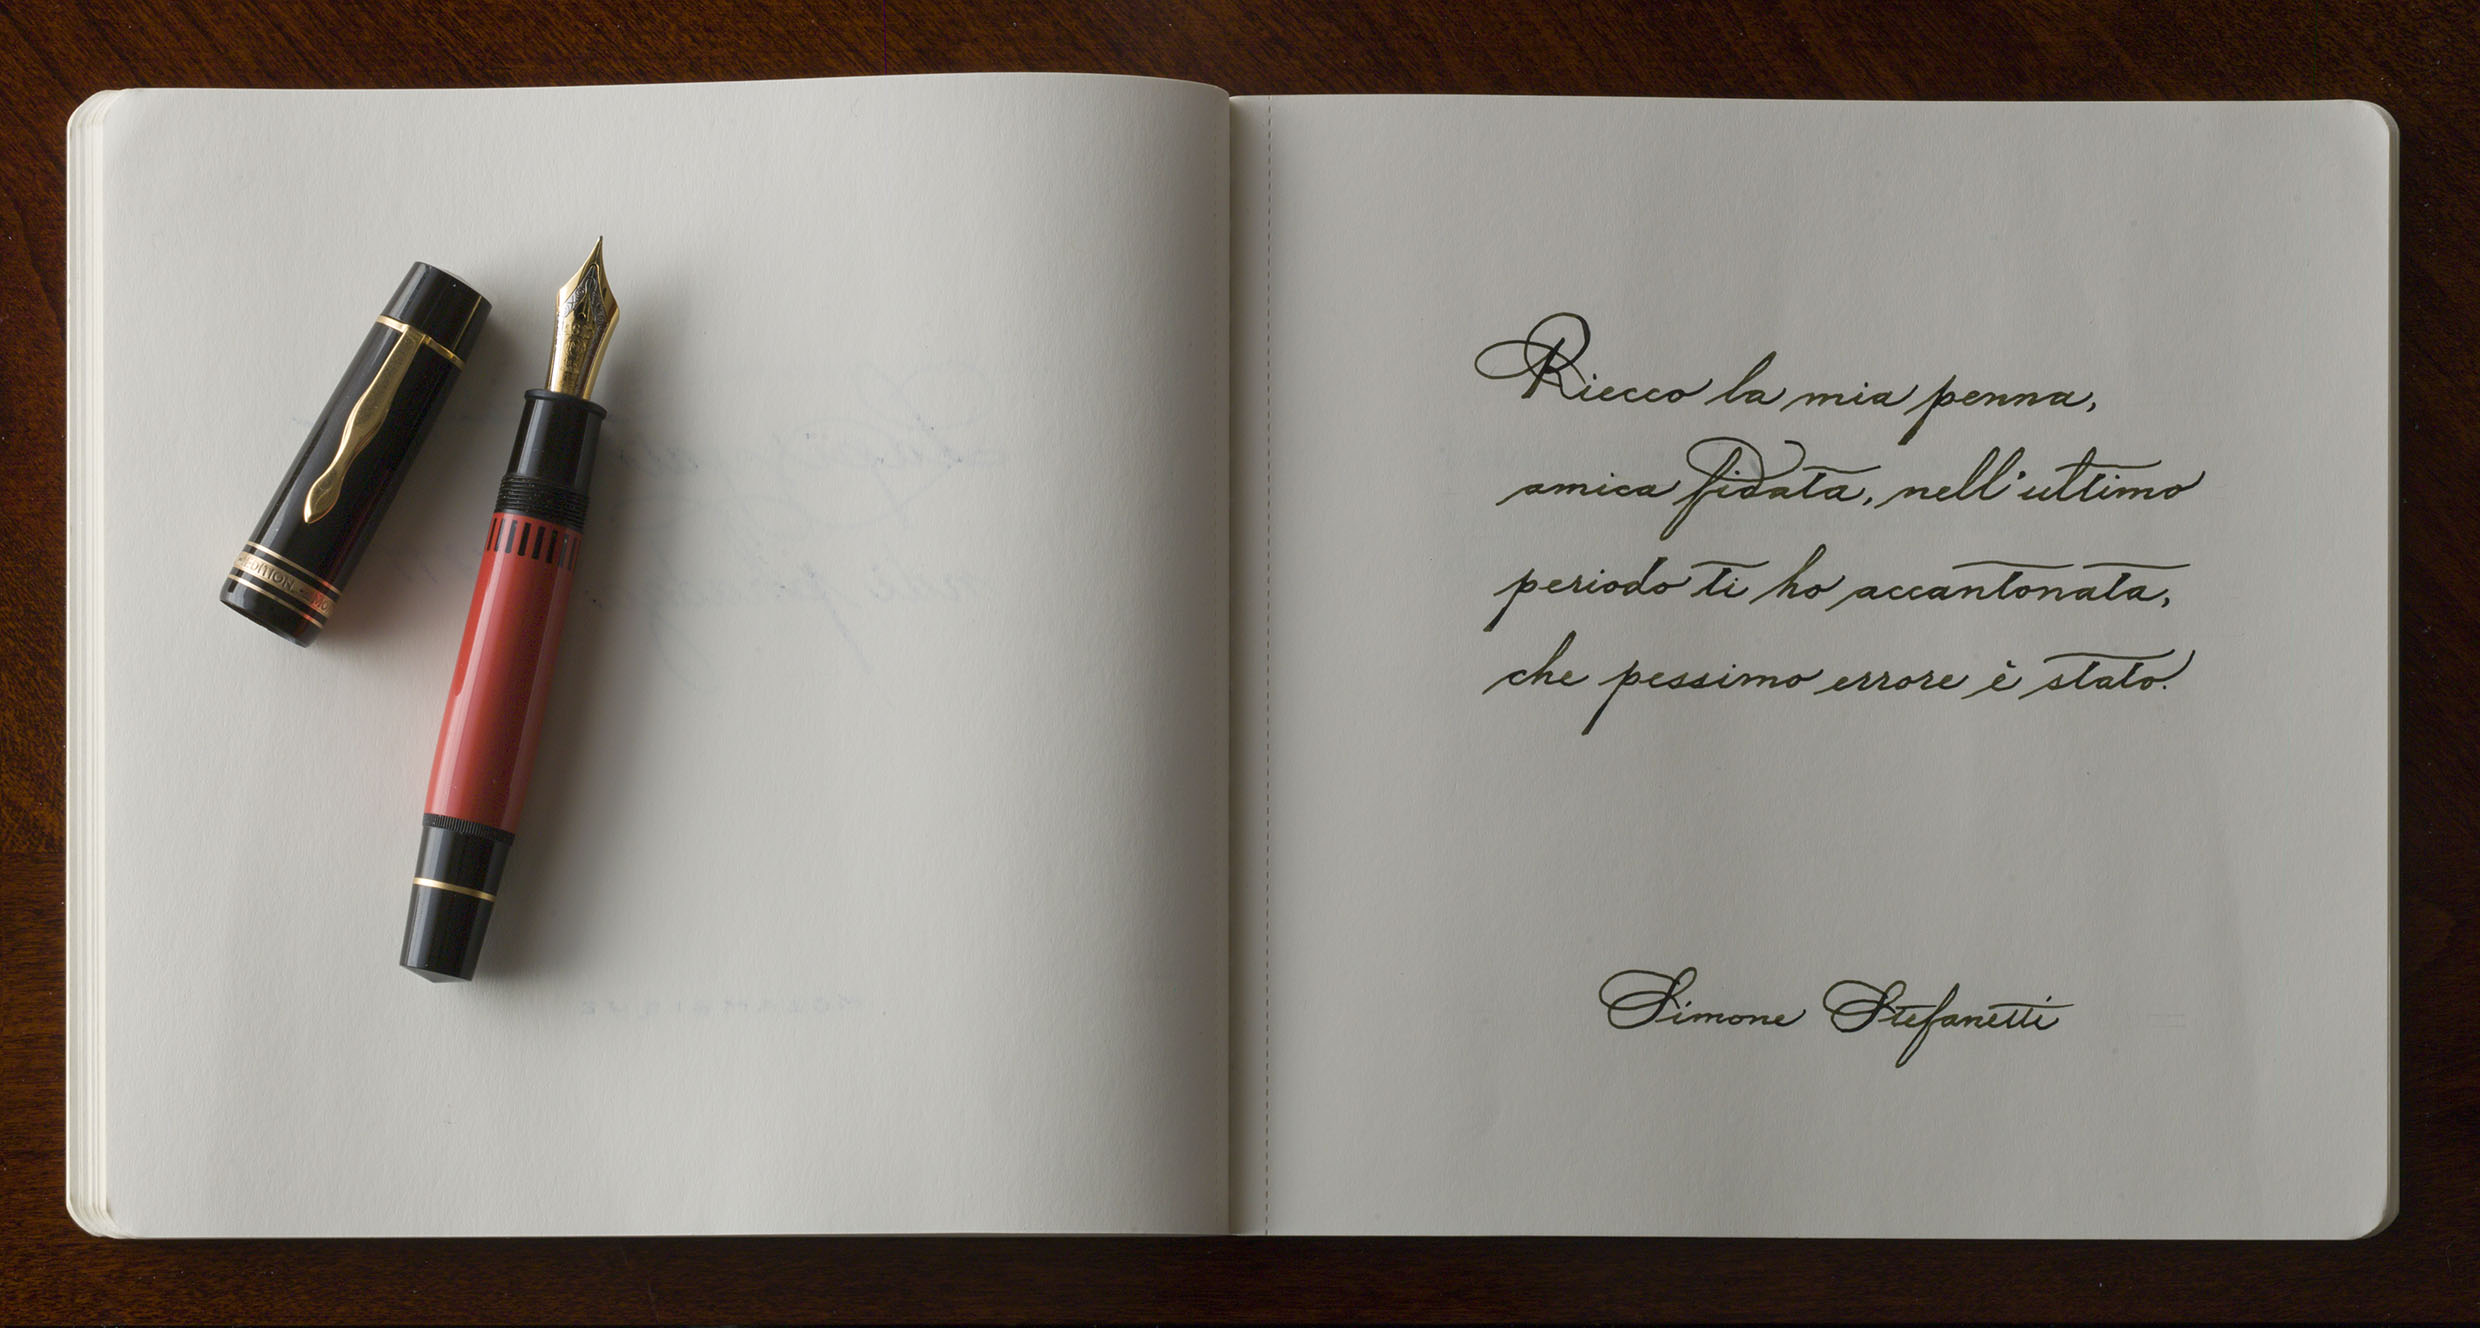 EDITION
Riecco la mia penna,
amica fidata, nell'ultimo
periodo ti ho accantonata,
che pessimo errore è stato.
Simone Stefanetti